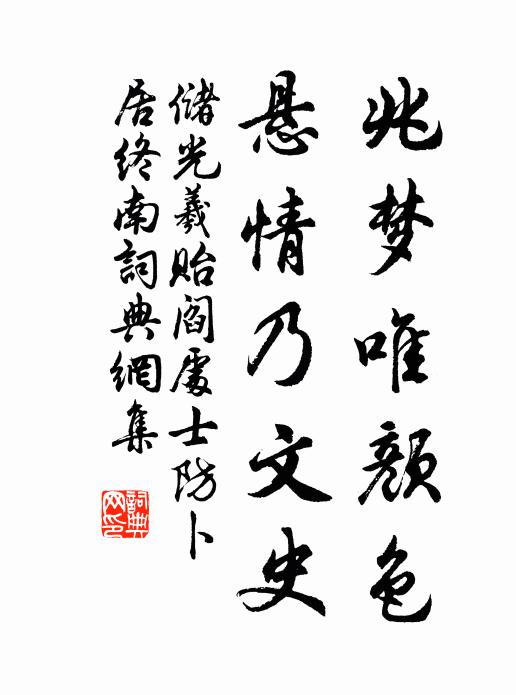 兆梦唯颜色
悬情乃文史
储光羲贻阎處士防卜
居终南詞典網集
詞典
网印